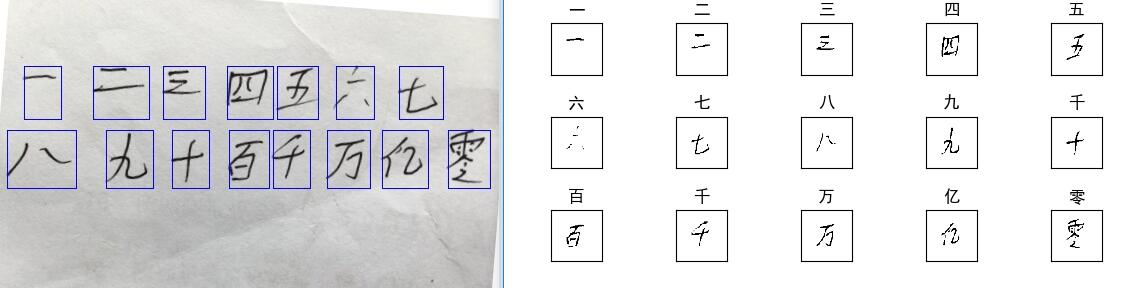 一 二 三 四 五 六 七
八 九 十 百 千 万 亿 零
一 二 三 四 五
一 二 三 四 五
六 七 八 九 千
六 七 八 九 十
百 千 万 亿 零
百 千 万 亿 零